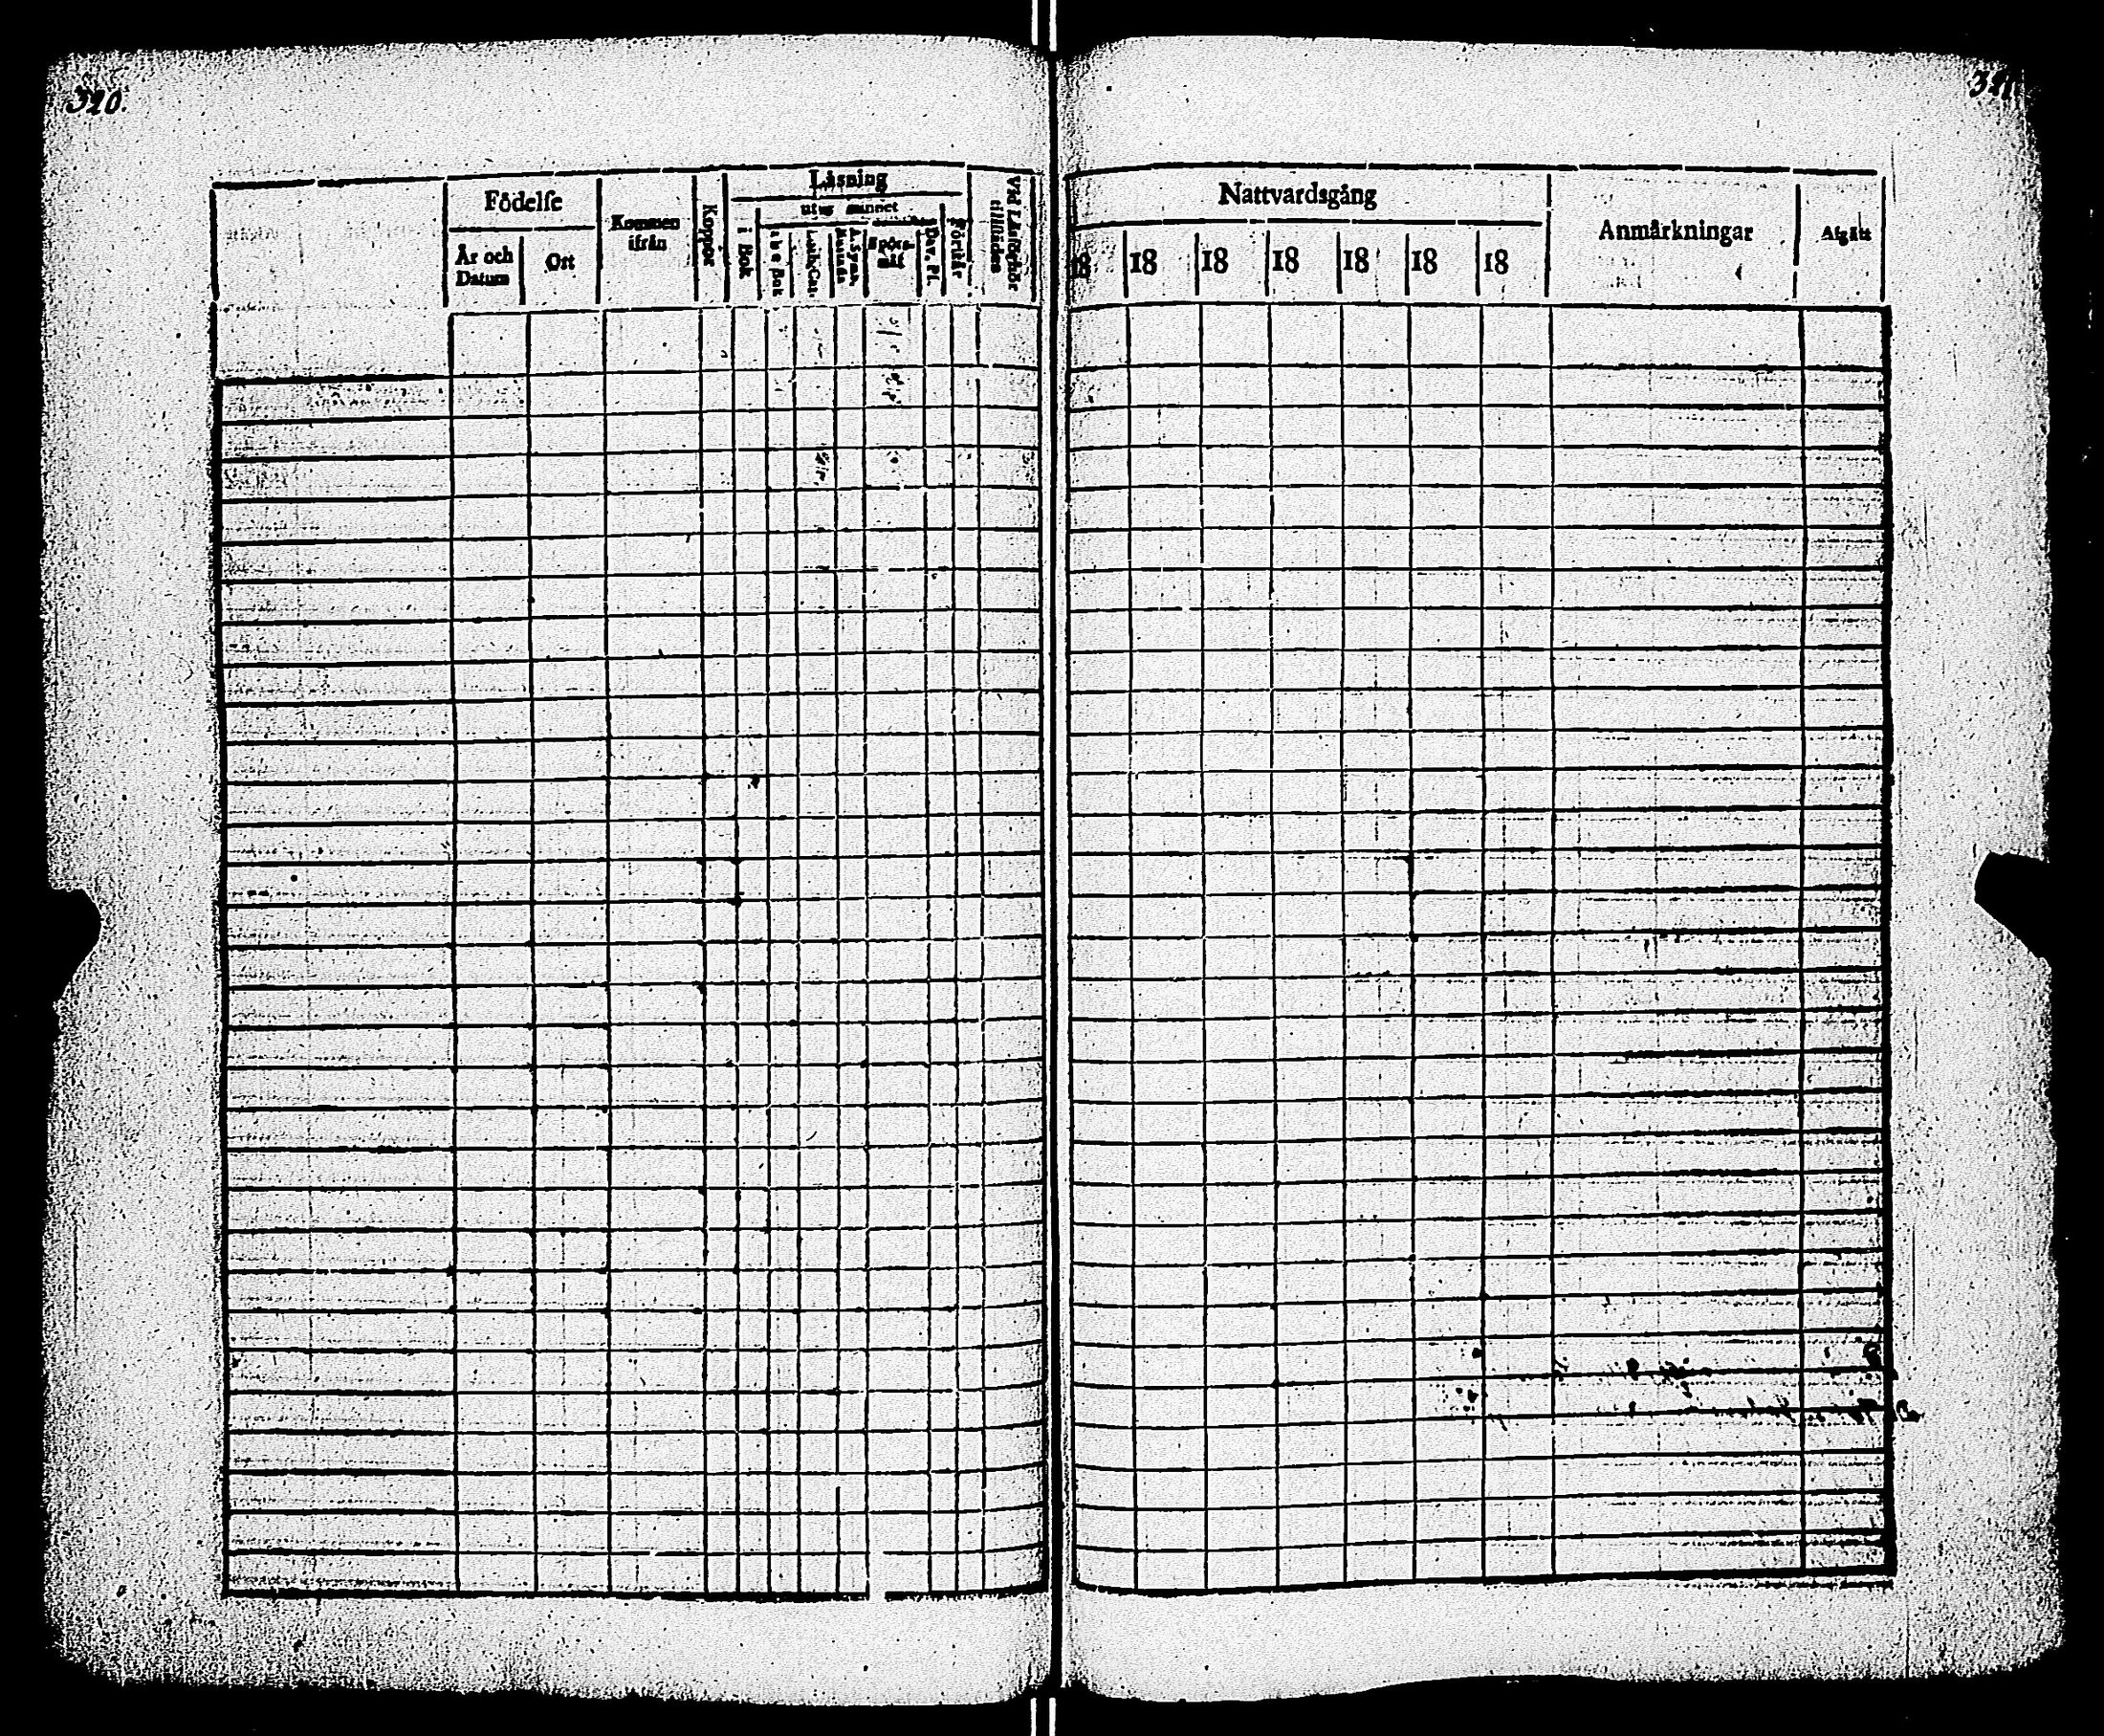 320.
Födelse
År och Datum
Ort
Kommen ifrån
Koppor
Läsning
utur minnet
i Bok
a b c Bok
Luth. Cat.
A. Symb.
Spörsmål
Dav. Ps.
Förstår
Vid Läsförhör tillstädes
321
Nattvardsgång
18 18 18 18 18 18 18
Anmärkningar
Afgått